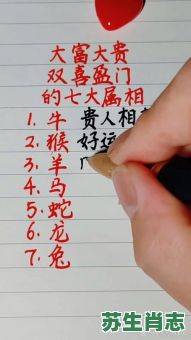 大富大贵
双喜盈门
的七大属相
1. 牛 贵人相
2. 猴 好运
3. 羊
4. 马
5. 蛇
6. 龙
7. 兔
苏生肖志